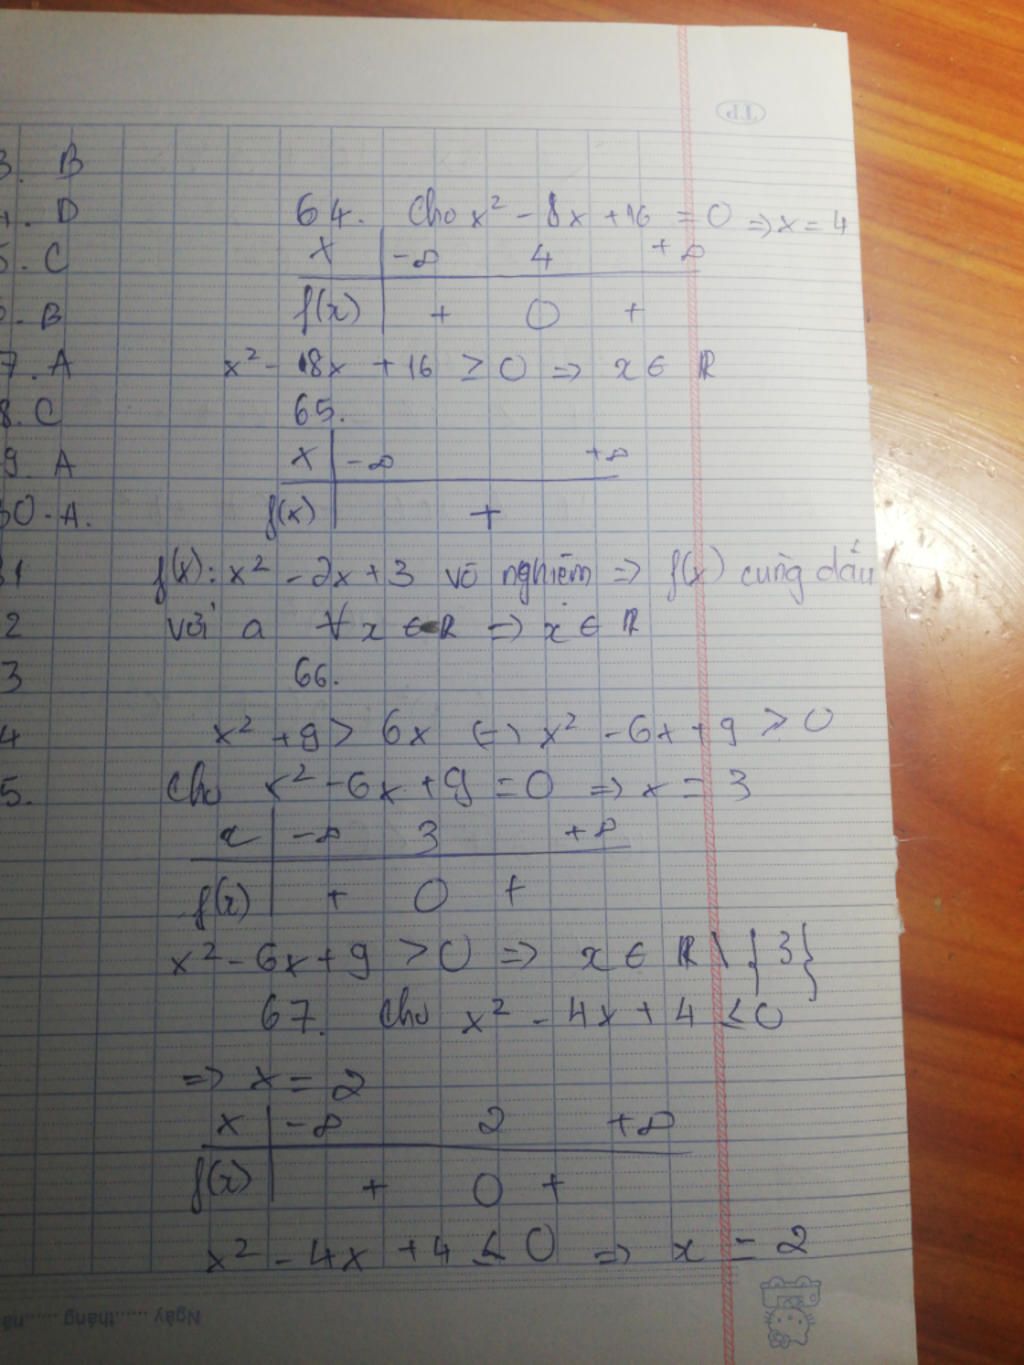 3. B
4. D
5. C
6. B
7. A
8. C
9. A
30. A.
31
2
3
4
5.
64. Cho x² - 8x + 16 = 0 => x = 4
x -∞ 4 +∞
f(x) + 0 +
x² - 8x + 16 ≥ 0 => x ∈ R
65.
x -∞ +∞
f(x) +
f(x): x² - 2x + 3 vô nghiệm => f(x) cùng dấu
với a ∀ x ∈ R => x ∈ R
66.
x² + 9 > 6x (=) x² - 6x + 9 > 0
Cho x² - 6x + 9 = 0 => x = 3
x -∞ 3 +∞
f(x) + 0 +
x² - 6x + 9 > 0 => x ∈ R \ {3}
67. Cho x² - 4x + 4 ≤ 0
=> x = 2
x -∞ 2 +∞
f(x) + 0 +
x² - 4x + 4 ≤ 0 => x = 2
TP
Ngày ......tháng ......nă